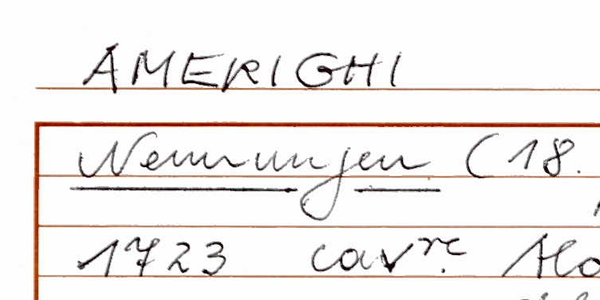 AMERIGHI
Nennungen (18.
1723 cav.re